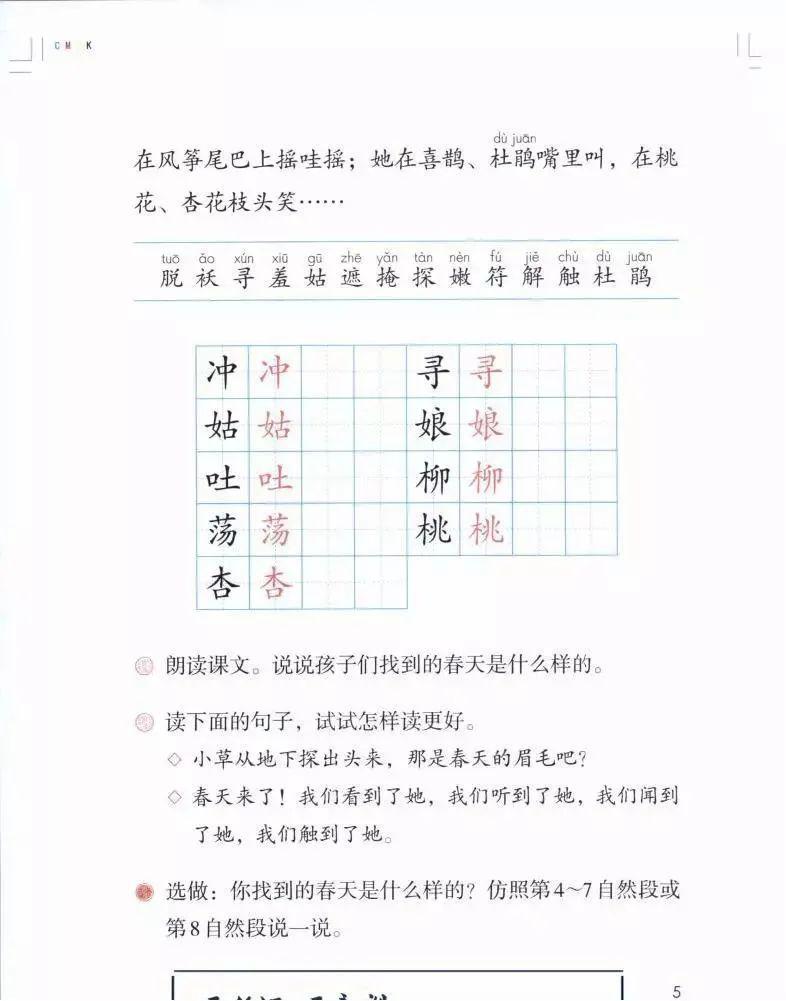 CM K
dù juān
在风筝尾巴上摇哇摇；她在喜鹊、杜鹃嘴里叫，在桃
花、杏花枝头笑……
tuō ǎo xún xiū gū zhē yǎn tàn nèn fú jiě chù dù juān
脱 袄 寻 羞 姑 遮 掩 探 嫩 符 解 触 杜 鹃
冲 冲 寻 寻
姑 姑 娘 娘
吐 吐 柳 柳
荡 荡 桃 桃
杏 杏
朗读课文。说说孩子们找到的春天是什么样的。
读下面的句子，试试怎样读更好。
◇ 小草从地下探出头来，那是春天的眉毛吧？
◇ 春天来了！我们看到了她，我们听到了她，我们闻到
了她，我们触到了她。
选做：你找到的春天是什么样的？仿照第4~7自然段或
第8自然段说一说。
5